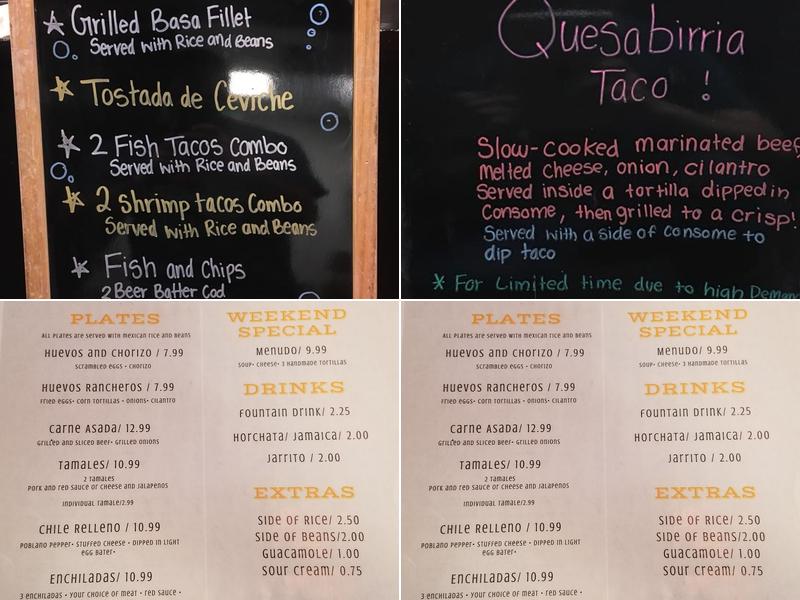 Grilled Basa Fillet
Served with Rice and Beans
Tostada de Ceviche
2 Fish Tacos Combo
Served with Rice and Beans
2 Shrimp tacos Combo
Served with Rice and Beans
Fish and Chips
2 Beer Batter Cod
Quesabirria
Taco !
Slow-cooked marinated beef,
melted cheese, onion, cilantro
Served inside a tortilla dipped in
Consome, then grilled to a crisp!
Served with a side of consome to
dip taco
* For Limited time due to high Deman
PLATES
ALL PLATES ARE SERVED WITH MEXICAN RICE AND BEANS
HUEVOS AND CHORIZO / 7.99
SCRAMBLED EGGS • CHORIZO
HUEVOS RANCHEROS / 7.99
FRIED EGGS• CORN TORTILLAS • ONIONS• CILANTRO
CARNE ASADA/ 12.99
GRILLED AND SLICED BEEF• GRILLED ONIONS
TAMALES/ 10.99
2 TAMALES
PORK AND RED SAUCE OR CHEESE AND JALAPENOS
INDIVIDUAL TAMALE/2.99
CHILE RELLENO / 10.99
POBLANO PEPPER• STUFFED CHEESE • DIPPED IN LIGHT
EGG BATER•
ENCHILADAS/ 10.99
3 ENCHILADAS • YOUR CHOICE OF MEAT • RED SAUCE •
WEEKEND
SPECIAL
MENUDO/ 9.99
SOUP• CHEESE• 3 HANDMADE TORTILLAS
DRINKS
FOUNTAIN DRINK/ 2.25
HORCHATA/ JAMAICA/ 2.00
JARRITO / 2.00
EXTRAS
SIDE OF RICE/ 2.50
SIDE OF BEANS/2.00
GUACAMOLE/ 1.00
SOUR CREAM/ 0.75
PLATES
ALL PLATES ARE SERVED WITH MEXICAN RICE AND BEANS
HUEVOS AND CHORIZO / 7.99
SCRAMBLED EGGS • CHORIZO
HUEVOS RANCHEROS / 7.99
FRIED EGGS• CORN TORTILLAS • ONIONS• CILANTRO
CARNE ASADA/ 12.99
GRILLED AND SLICED BEEF• GRILLED ONIONS
TAMALES/ 10.99
2 TAMALES
PORK AND RED SAUCE OR CHEESE AND JALAPENOS
INDIVIDUAL TAMALE/2.99
CHILE RELLENO / 10.99
POBLANO PEPPER• STUFFED CHEESE • DIPPED IN LIGHT
EGG BATER•
ENCHILADAS/ 10.99
3 ENCHILADAS • YOUR CHOICE OF MEAT • RED SAUCE •
WEEKEND
SPECIAL
MENUDO/ 9.99
SOUP• CHEESE• 3 HANDMADE TORTILLAS
DRINKS
FOUNTAIN DRINK/ 2.25
HORCHATA/ JAMAICA/ 2.00
JARRITO / 2.00
EXTRAS
SIDE OF RICE/ 2.50
SIDE OF BEANS/2.00
GUACAMOLE/ 1.00
SOUR CREAM/ 0.75